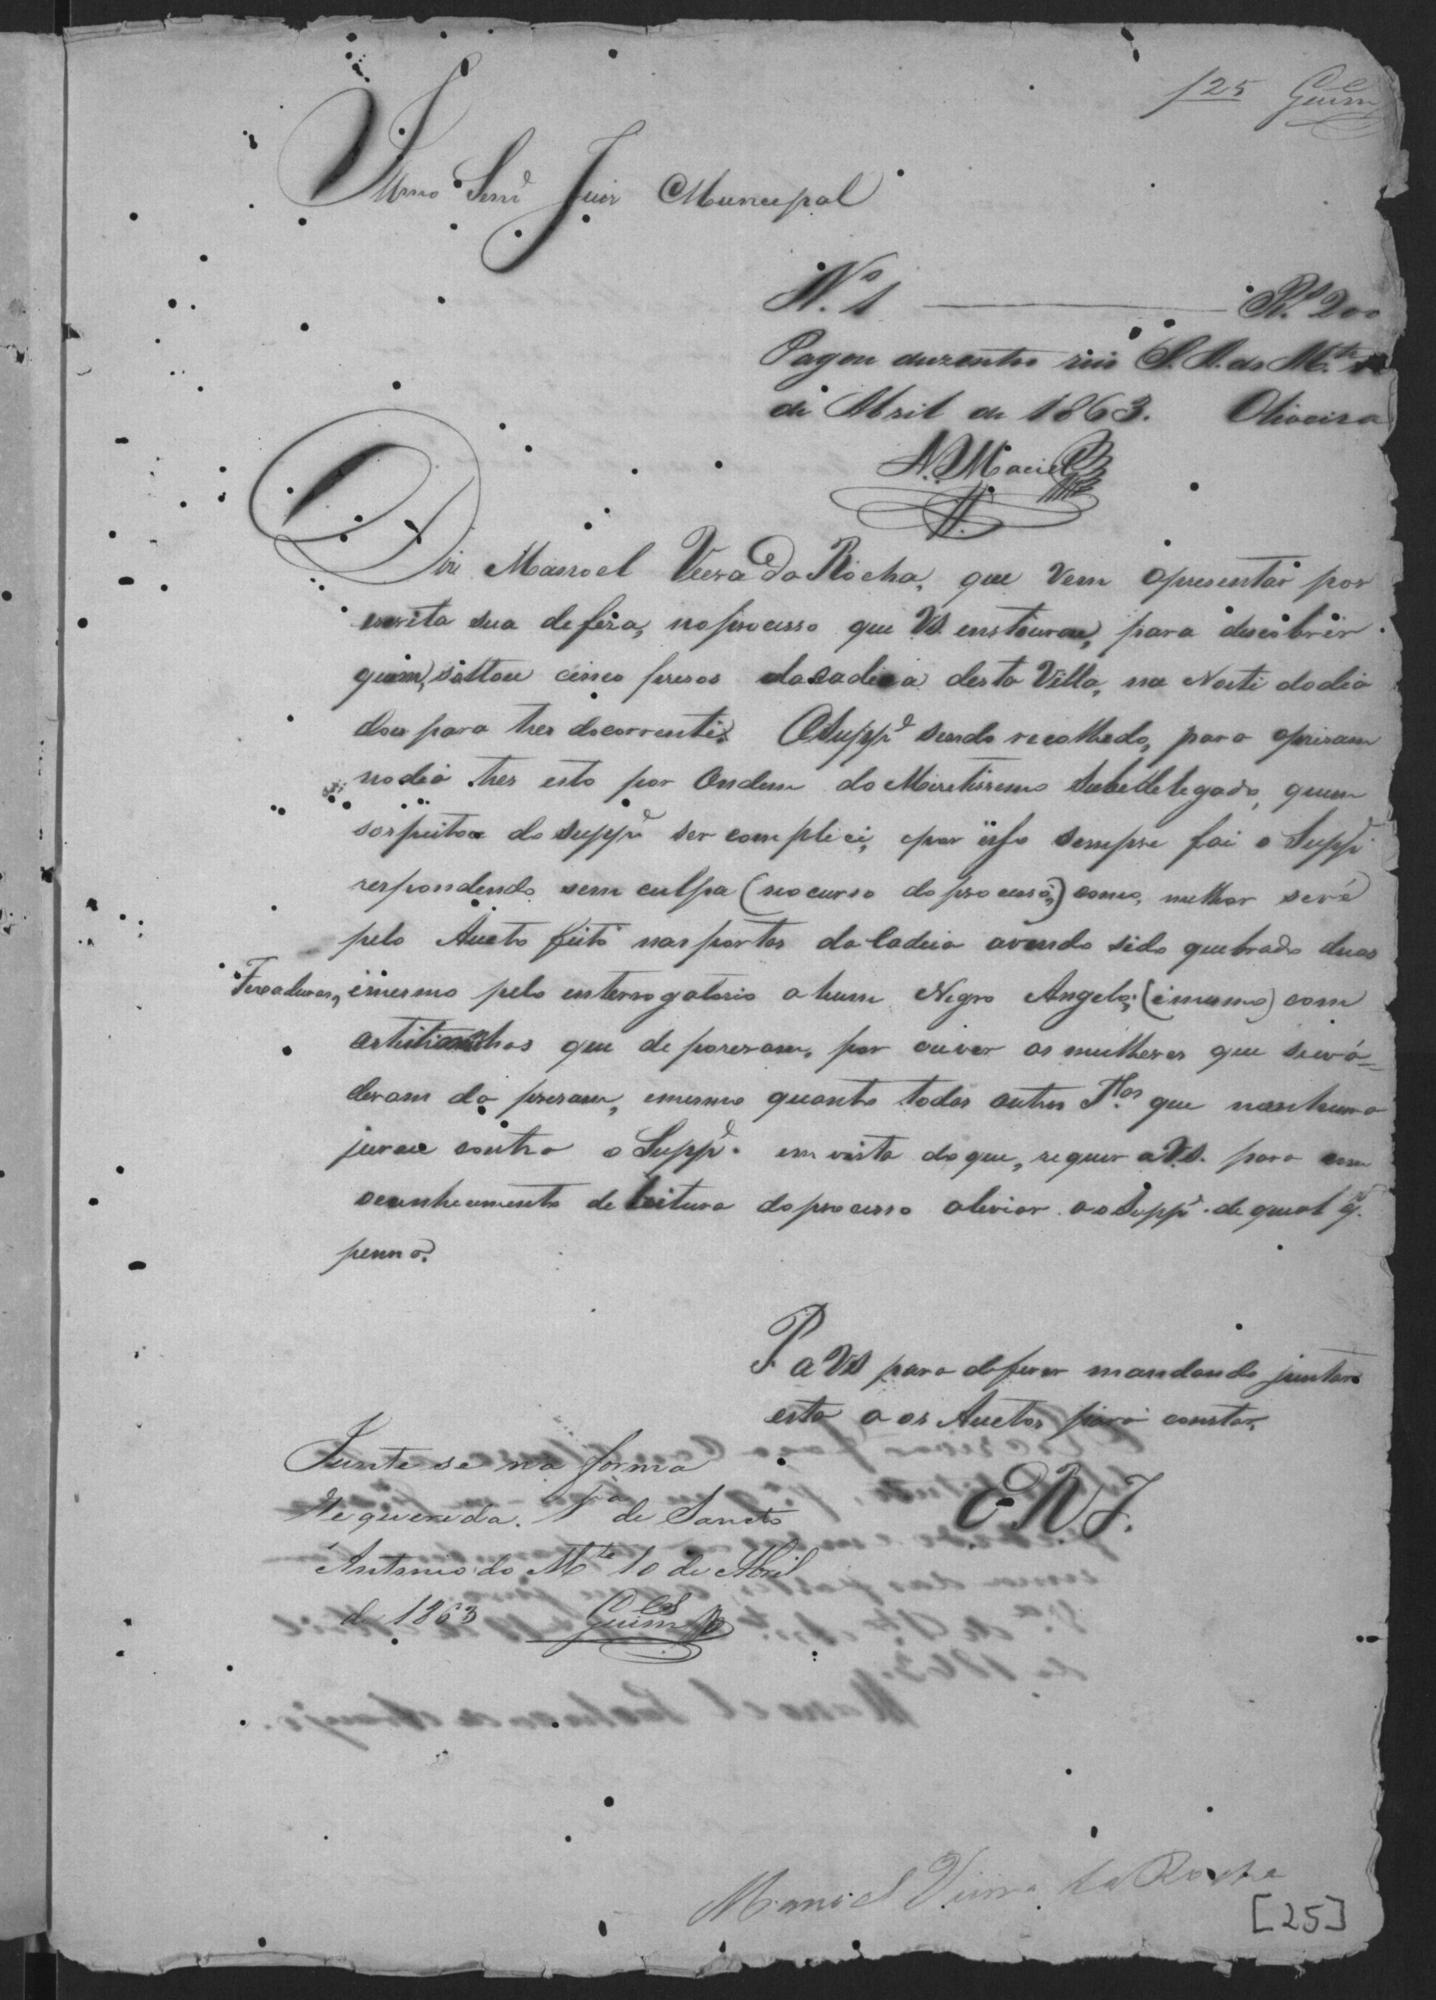 f 25 Guim.es
Illmo Senr. Juiz Muncepal
N.º 1 ——— Rs. 200
Pagou duzentos reis S. A. do M.te
de Abril de 1863. Oliveira
N. Maciel
Diz Manoel Vieira da Rocha, que vem apresentar por
escrita sua defeza, no processo que VS. enstourou, para descobrir
quem, soltou cinco presos da cadeia desta Villa, na Noite do dia
dous para tres do corrente. O Suppe. sendo recolhedo, para aprizam
no dia tres esto por Ondem do Meretissemo Subedelegado, quem
sospeitou do suppe. ser complice, e por isso sempre foi o Suppe.
respondendo sem culpa (no curso do processo,) como, melhor será
pelo Aucto feito nas portas da Cadeia avendo sido quebrado duas
Fexaduras, emesmo pelo enterrogatorio a hum Negro Angelo; (emesmo) com
astestimunhas que depozeram, por ouver as mulheres que sevá=
deram da prezam, emesmo quanto todas outras T.as que nenhuma
jurou contra o Suppe. em vista do que, requer a VS. para em
oconhecimento de leitura do processo aliviar ao Suppe. de qual q.r
penna.
P. a VS para deferer mandando juntar
esta a os Auctos para constar,
E. R. J.
Junte se na forma
Requerida. Va. de Sancto
Antonio do M.te 10 de Abril
de 1863 Guim.es
Manoel Vieira da Rocha
[25]